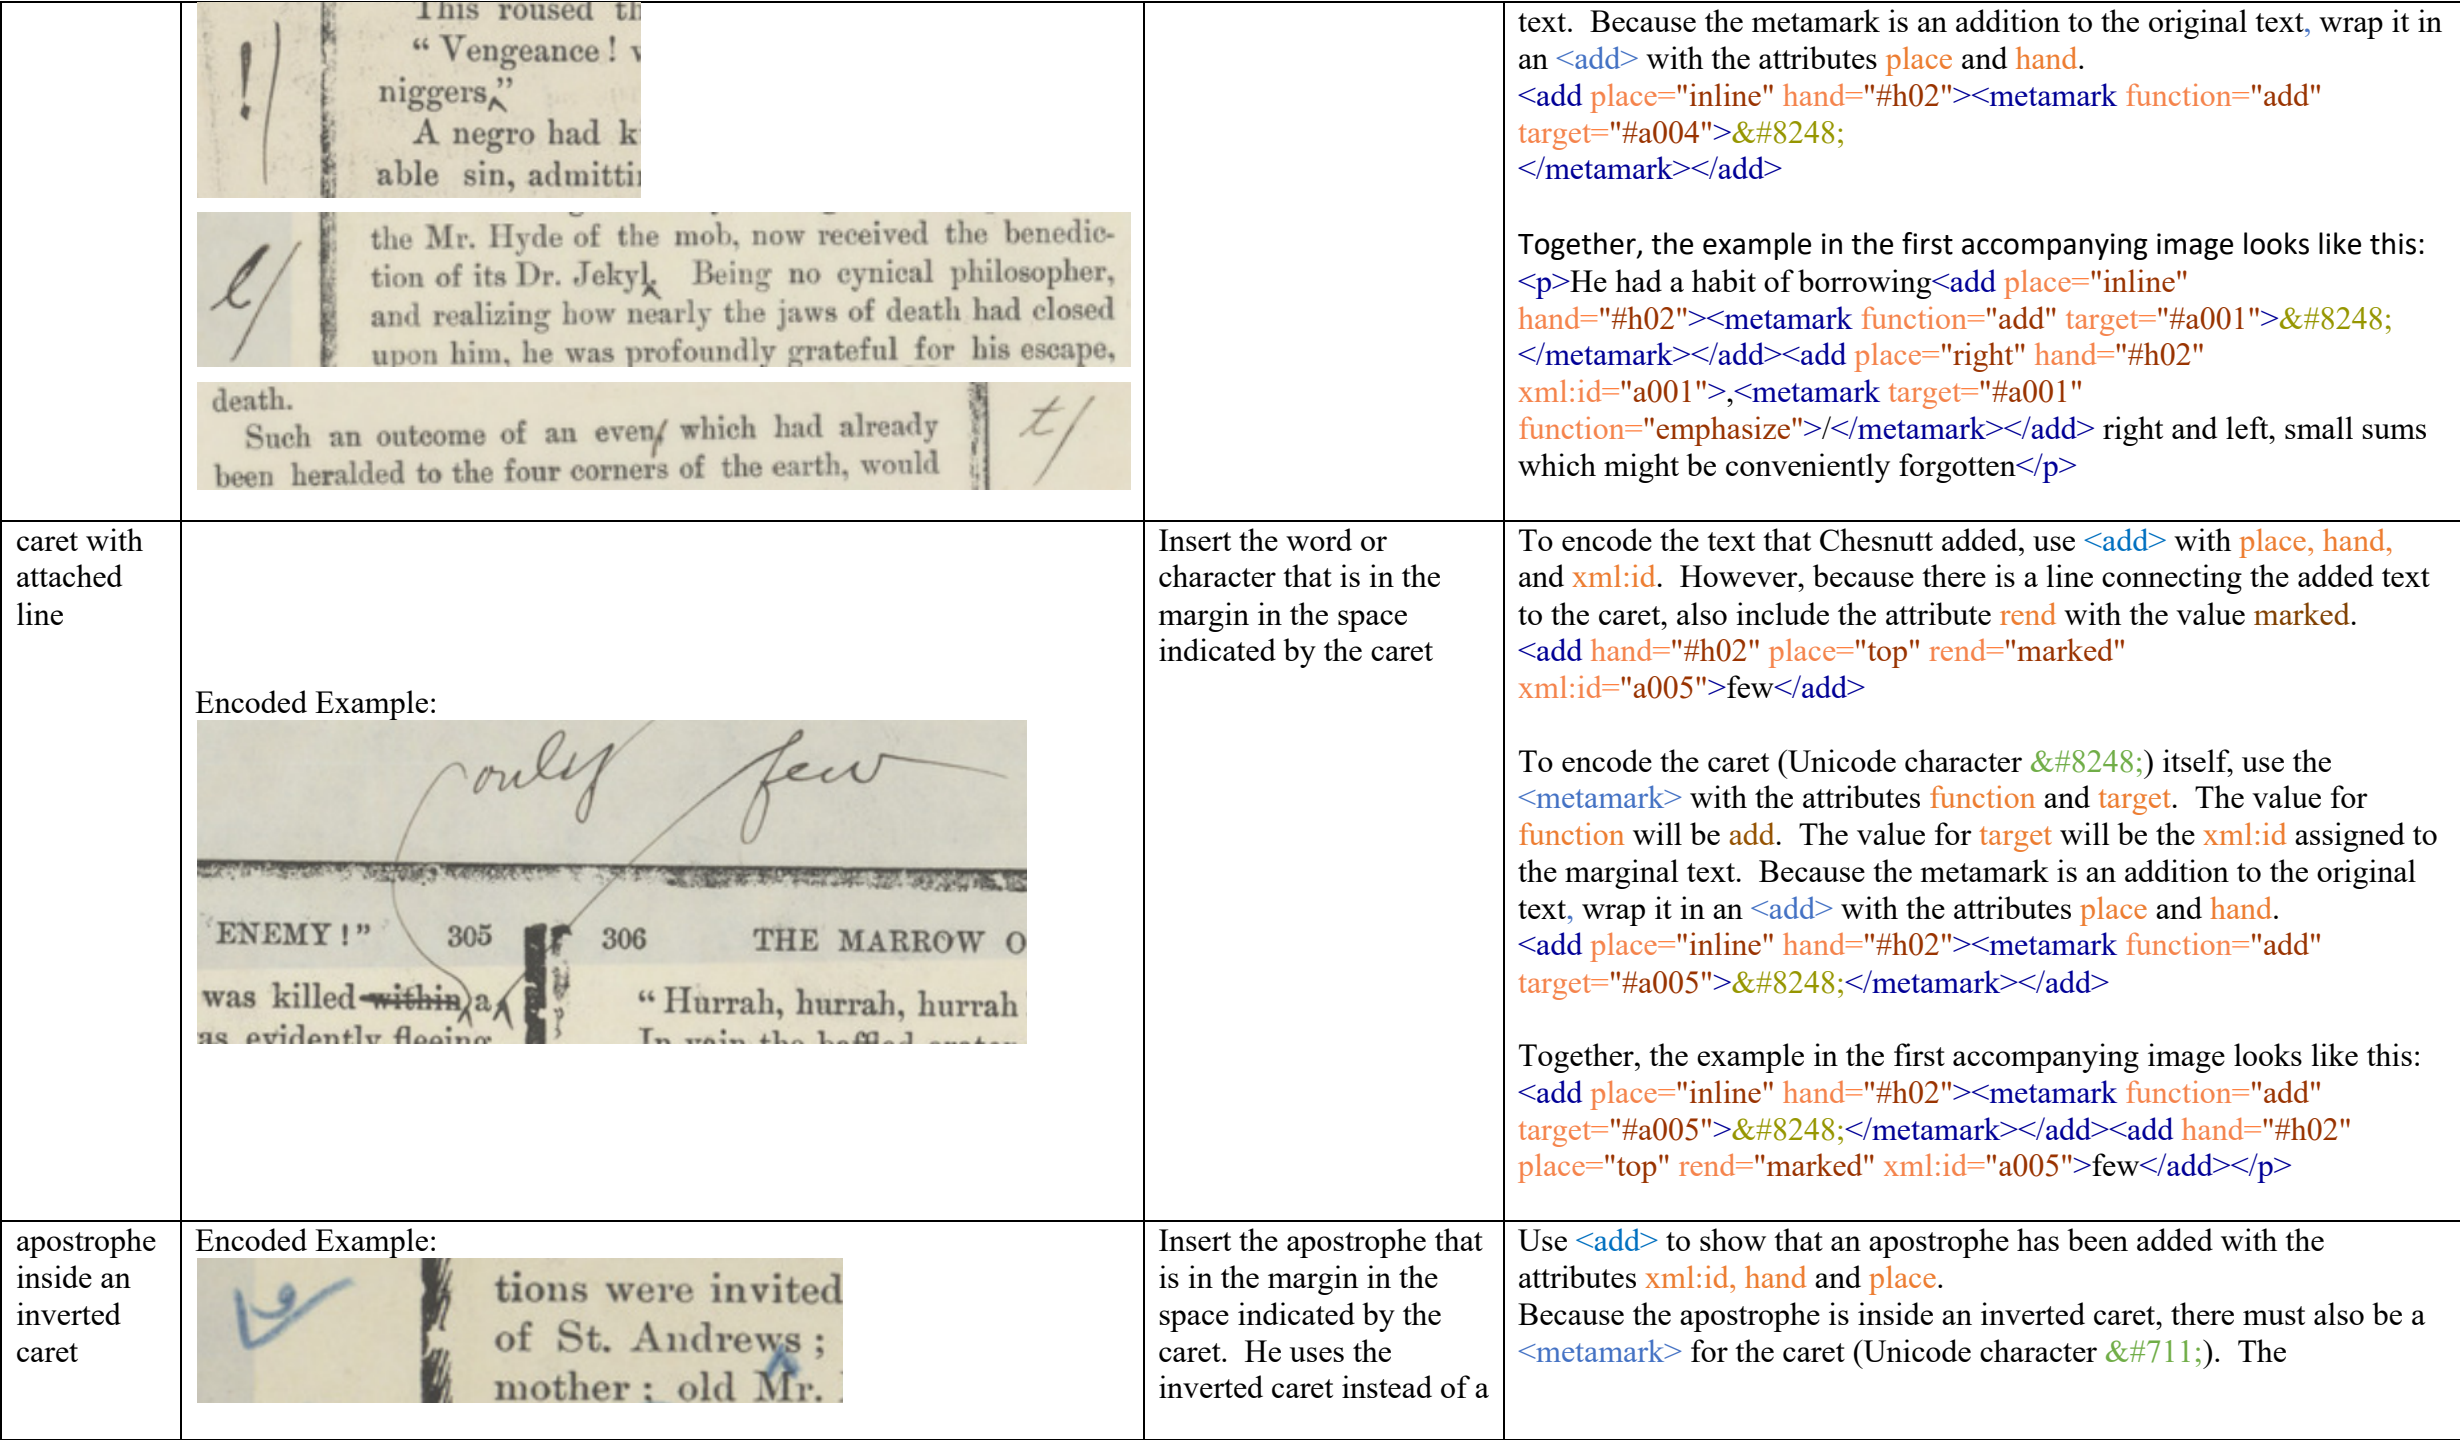 This roused th
“ Vengeance ! v
!/
niggers‸”
A negro had k
able sin, admitti
the Mr. Hyde of the mob, now received the benedic-
l/
tion of its Dr. Jekyl‸ Being no cynical philosopher,
and realizing how nearly the jaws of death had closed
upon him, he was profoundly grateful for his escape,
death.
Such an outcome of an even/ which had already
t/
been heralded to the four corners of the earth, would
text. Because the metamark is an addition to the original text, wrap it in
an <add> with the attributes place and hand.
<add place="inline" hand="#h02"><metamark function="add"
target="#a004">&#8248;
</metamark></add>
Together, the example in the first accompanying image looks like this:
<p>He had a habit of borrowing<add place="inline"
hand="#h02"><metamark function="add" target="#a001">&#8248;
</metamark></add><add place="right" hand="#h02"
xml:id="a001">,<metamark target="#a001"
function="emphasize">/</metamark></add> right and left, small sums
which might be conveniently forgotten</p>
caret with
attached
line
Encoded Example:
only few
ENEMY ! ” 305 306 THE MARROW O
was killed within‸a‸ “ Hurrah, hurrah, hurrah
as evidently fleeing In vain the baffled orator
Insert the word or
character that is in the
margin in the space
indicated by the caret
To encode the text that Chesnutt added, use <add> with place, hand,
and xml:id. However, because there is a line connecting the added text
to the caret, also include the attribute rend with the value marked.
<add hand="#h02" place="top" rend="marked"
xml:id="a005">few</add>
To encode the caret (Unicode character &#8248;) itself, use the
<metamark> with the attributes function and target. The value for
function will be add. The value for target will be the xml:id assigned to
the marginal text. Because the metamark is an addition to the original
text, wrap it in an <add> with the attributes place and hand.
<add place="inline" hand="#h02"><metamark function="add"
target="#a005">&#8248;</metamark></add>
Together, the example in the first accompanying image looks like this:
<add place="inline" hand="#h02"><metamark function="add"
target="#a005">&#8248;</metamark></add><add hand="#h02"
place="top" rend="marked" xml:id="a005">few</add></p>
apostrophe
inside an
inverted
caret
Encoded Example:
tions were invited
of St. Andrews ;
mother ; old Mr.
Insert the apostrophe that
is in the margin in the
space indicated by the
caret. He uses the
inverted caret instead of a
Use <add> to show that an apostrophe has been added with the
attributes xml:id, hand and place.
Because the apostrophe is inside an inverted caret, there must also be a
<metamark> for the caret (Unicode character &#711;). The